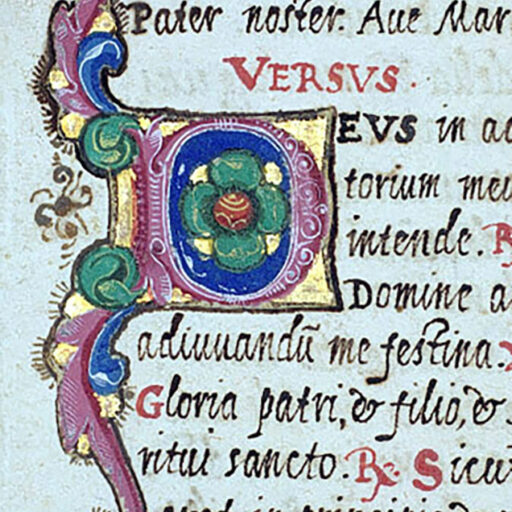 Pater noster. Ave Mar
VERSVS.
DEVS in ad
torium meu
intende. R
Domine a
adiuuandū me festina.
Gloria patri, & filio, &
ritui sancto. R. Sicut